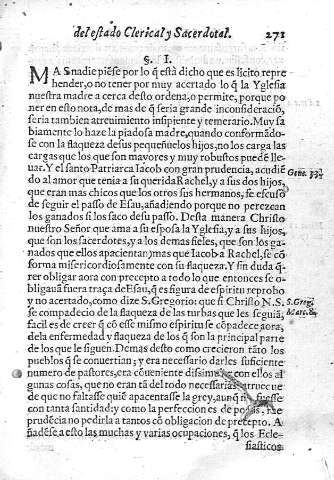 del estado Clerical y Sacerdotal. 271
§. I.
MAS nadie piẽse por lo q̃ està dicho que es licito repre
hender, o no tener por muy acertado lo q̃ la Yglesia
nuestra madre a cerca desto ordena, o permite, porque po
ner en esto nota, de mas de q̃ seria grande inconsideraciõ,
seria tambien atreuimiento insipiente y temerario. Muy sa
biamente lo haze la piadosa madre, quando conformãdo-
se con la flaqueza de sus pequeñuelos hijos, no los carga las
cargas que los que son mayores y muy robustos puedẽ lle-
uar. Y el santo Patriarca Iacob con gran prudencia, acudiẽ
do al amor que tenia a su querida Rachel, y a sus dos hijos,
que eran mas chicos que los otros sus hermanos, se escusò
de seguir el passo de Esau, añadiendo porque no perezcan
los ganados si los saco de su passo. Desta manera Christo
nuestro Señor que ama a su esposa la Yglesia, y a sus hijos,
que son los sacerdotes, y a los demas fieles, que son los ga-
nados que ellos apacientan; mas que Iacob a Rachel, se cõ
forma misericordiosamente con su flaqueza. Y sin duda q̃-
rer obligar aora con precepto a todo lo que entonces se o-
bligauã fuera traça de Esau, q̃ es figura de espiritu reprobo
y no acertado, como dize S. Gregorio: que si Christo N.S.
se compadecio de la flaqueza de las turbas que les seguiã,
facil es de creer q̃ cõ esse mismo espiritu se cõpadece aora,
dela enfermedad y flaqueza de los q̃ son la principal parte
de los que le siguen. Demas desto como crecieron tãto los
pueblos q̃ se conuertian; y era necessario darles suficiente
numero de pastores, era cõueniente dissimular con ellos al
gunas cosas, que no eran tã del todo necessarias, a trueque
de que no faltasse quiẽ apacentasse la grey, aunq̃ no fuesse
con tanta santidad; y como la perfeccion es de pocos, fue
prudẽcia no pedirla a tantos cõ obligacion de precepto. A
ñadese, a esto las muchas y varias ocupaciones, q̃ los Ecle-
siasticos
Gene. 33.
S. Greg.